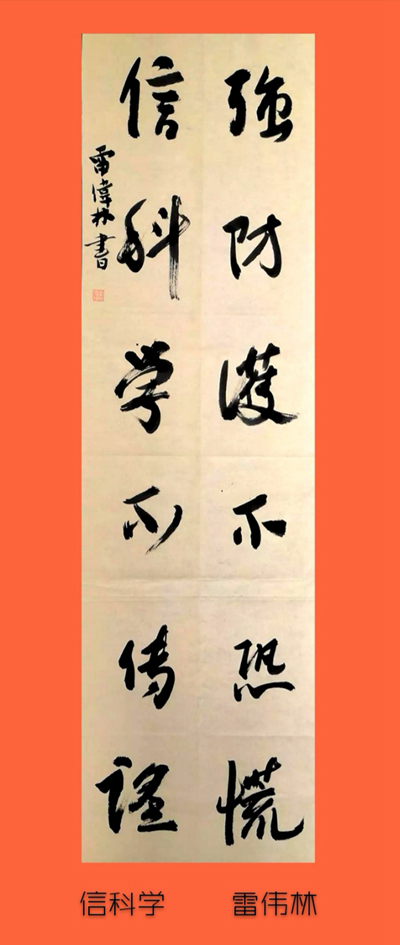 強防護不恐慌
信科学不傳謡
雷偉林書
信科学 雷伟林